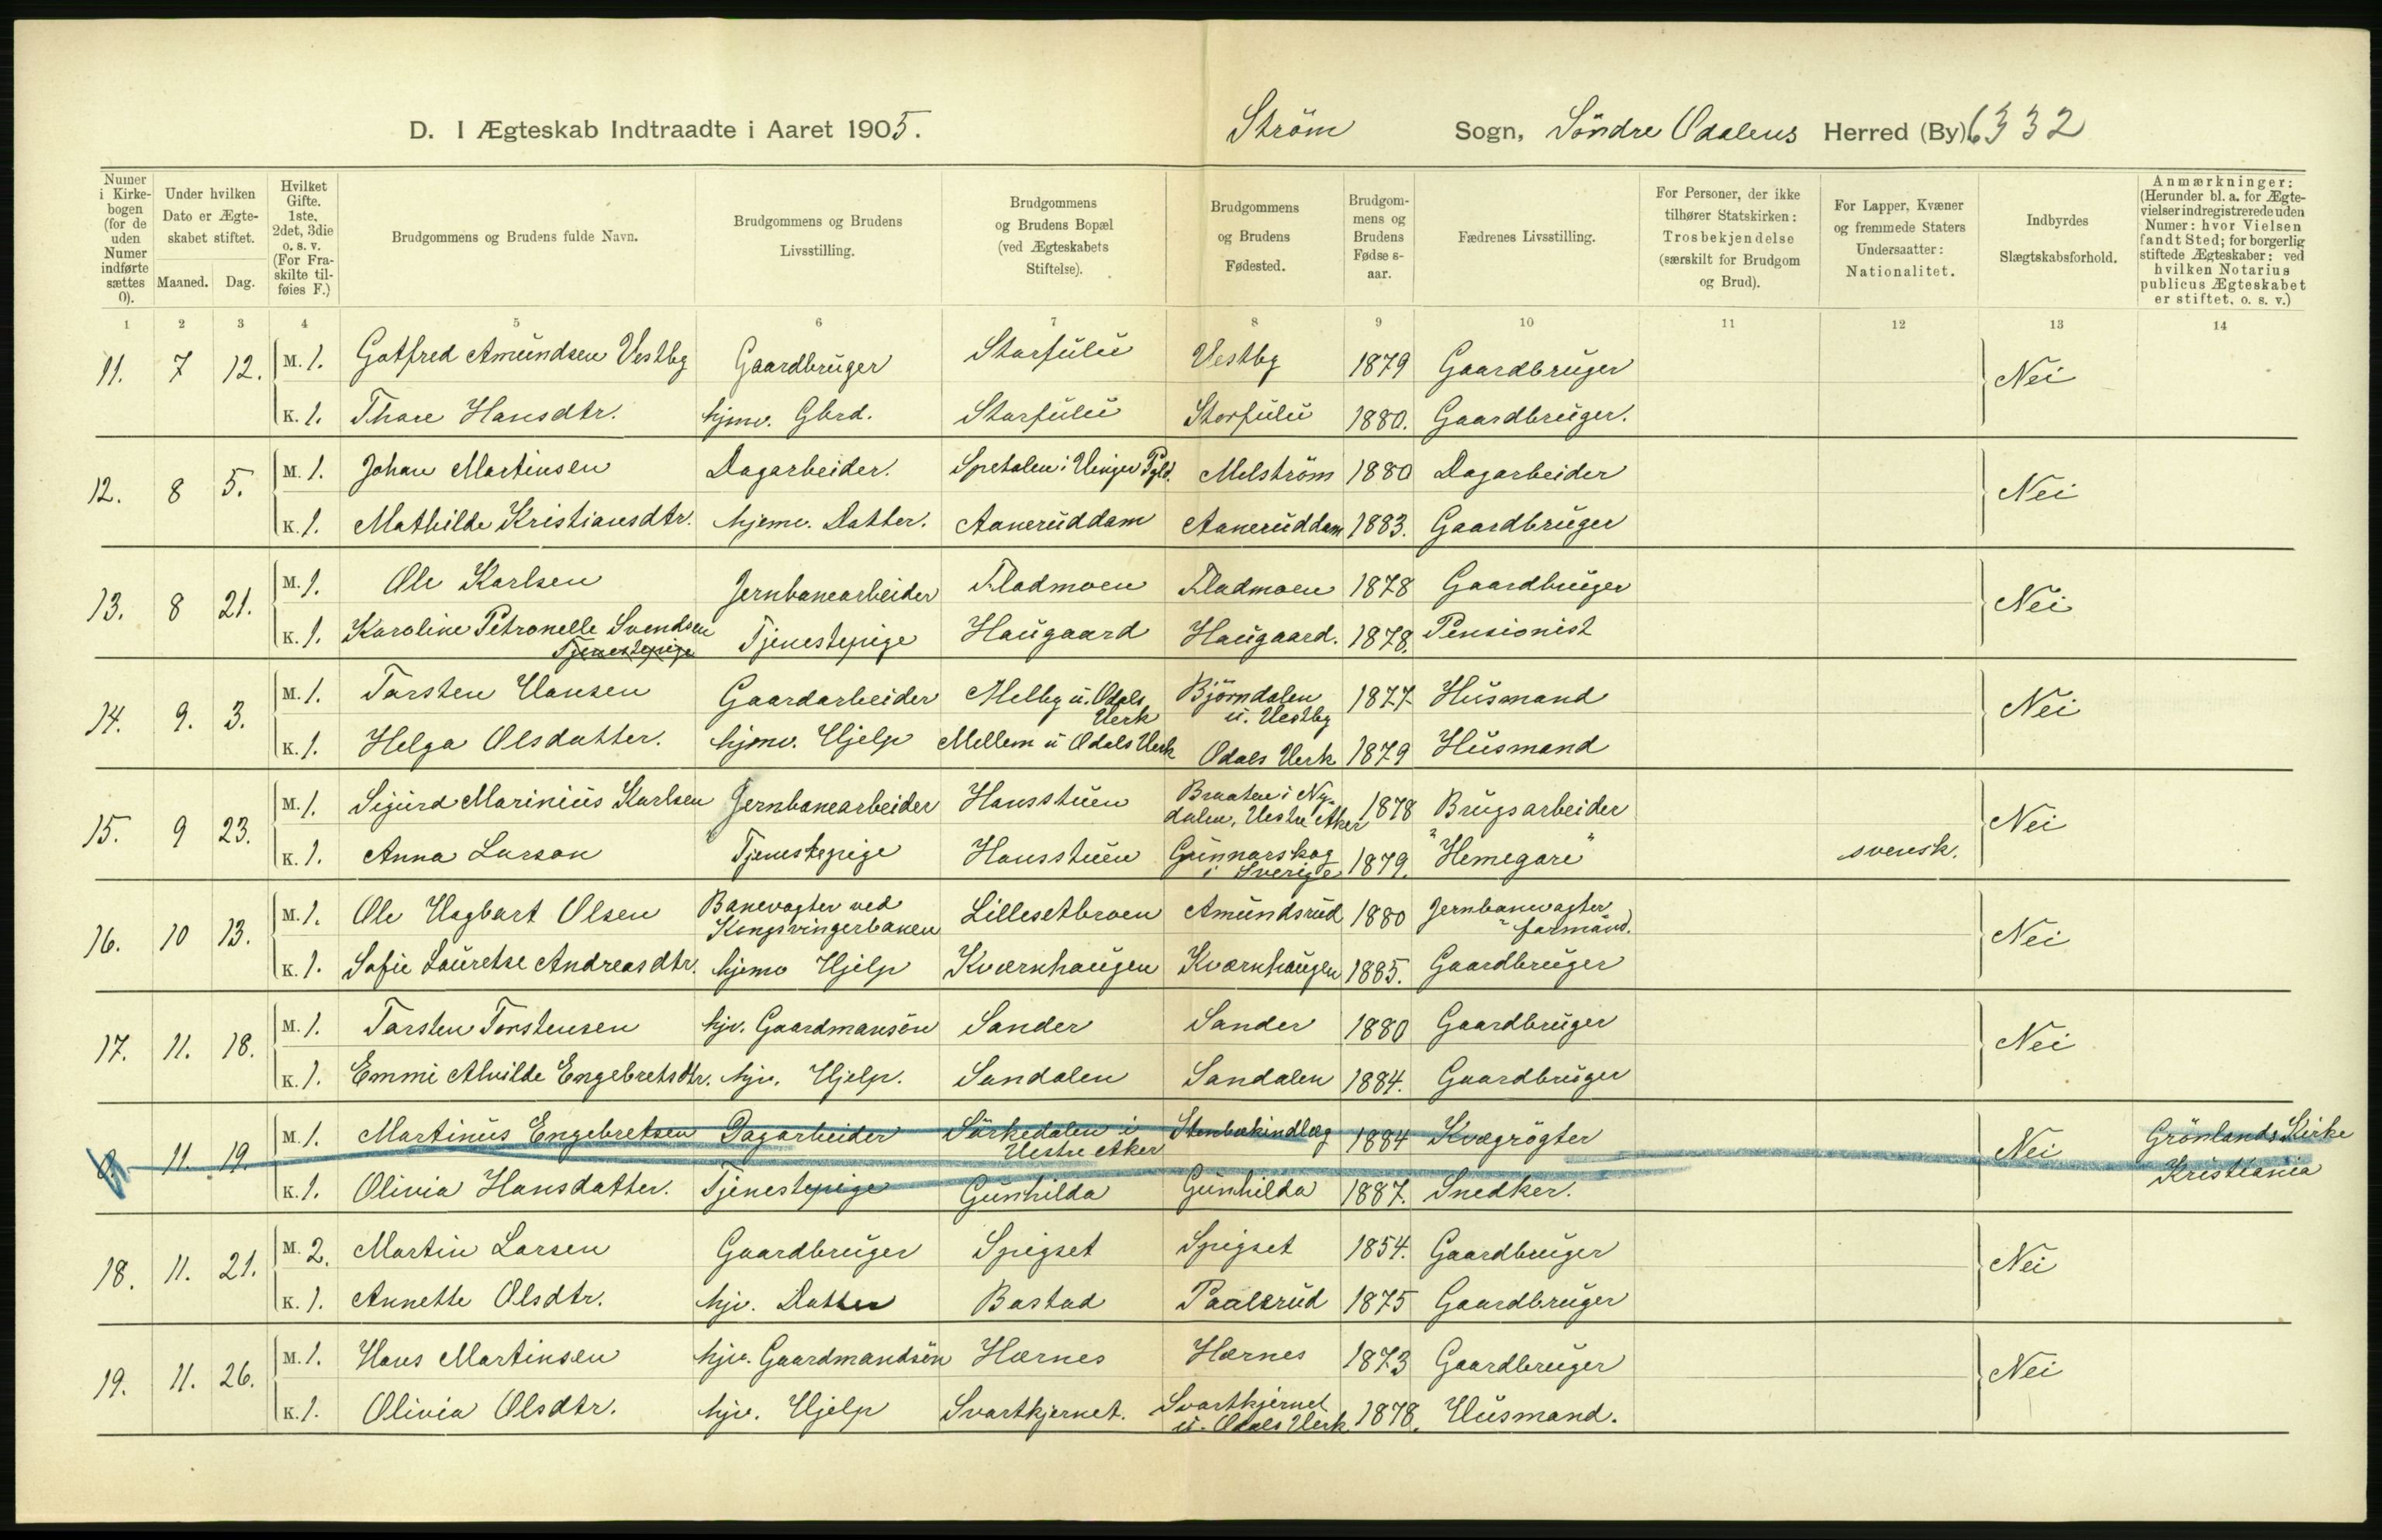 D. I Ægteskab Indtraadte i Aaret 1905. Ström Sogn, Söndre Odalens Herred (By) 6332
Numer i Kirkebogen (for de uden Numer indførte sættes 0).
Under hvilken Dato er Ægteskabet stiftet. Maaned. Dag.
Hvilket Gifte. 1ste, 2det, 3die o. s. v. (For Fraskilte tilføies F.)
Brudgommens og Brudens fulde Navn.
Brudgommens og Brudens Livsstilling.
Brudgommens og Brudens Bopæl (ved Ægteskabets Stiftelse).
Brudgommens og Brudens Fødested.
Brudgommens og Brudens Fødselsaar.
Fædrenes Livsstilling.
For Personer, der ikke tilhører Statskirken: Trosbekjendelse (særskilt for Brudgom og Brud).
For Lapper, Kvæner og fremmede Staters Undersaatter: Nationalitet.
Indbyrdes Slægtskabsforhold.
Anmærkninger: (Herunder bl. a. for Ægtevielser indregistrerede uden Numer: hvor Vielsen fandt Sted; for borgerlig stiftede Ægteskaber: ved hvilken Notarius publicus Ægteskabet er stiftet, o. s. v.)
1 2 3 4 5 6 7 8 9 10 11 12 13 14
11. 7 12. M. 1. Gotfred Amundsen Vestby Gaardbruger Storfulu Vestby 1879 Gaardbruger Nei
K. 1. Thore Hansdtr. hjmv. Gbrd. Storfulu Storfulu 1880. Gaardbruger.
12. 8 5. M. 1. Johan Martinsen Dagarbeider. Spetalen i Vinger Pgld. Melström 1880 Dagarbeider Nei
K. 1. Mathilde Kristiansdtr. hjemv. Datter. Aaneruddam Aaneruddam 1883. Gaardbruger
13. 8 21. M. 1. Ole Karlsen Jernbanearbeider Fladmoen Fladmoen 1878 Gaardbruger Nei
K. 1. Karoline Petronelle Svendsen Tjenestepige Tjenestepige Haugaard Haugaard. 1878. Pensionist
14. 9. 3. M. 1. Torsten Hansen Gaardarbeider Melby u. Odals Verk Björndalen u. Vestby 1877 Husmand Nei
K. 1. Helga Olsdatter. hjmv. Hjelp Mellem u Odals Verk Odals Verk 1879 Husmand
15. 9 23. M. 1. Sigurd Marinius Karlsen Jernbanearbeider Hansstuen Braaten i Nydalen, Vestre Aker 1878 Brugsarbeider Nei
K. 1. Anna Larson Tjenestepige Hansstuen Gunnarskog i Sverige 1879. "Hemegare" svensk.
16. 10 13. M. 1. Ole Hagbart Olsen Banevogter ved Kongsvingerbanen Lillesetbroen Amundsrud 1880 Jernbanevogter " formand. Nei
K. 1. Sofie Lauretse Andreasdtr. hjemv Hjelp Kværnhaugen Kværnhaugen 1885. Gaardbruger
17. 11. 18. M. 1. Torsten Torstensen hjv. Gaardmansön Sander Sander 1880 Gaardbruger Nei
K. 1. Emmi Alvilde Engebretsdtr. hjv. Hjelp. Sandalen Sandalen 1884. Gaardbruger
11. 19. M. 1. Martinus Engebretsen Dagarbeider Sörkedalen i Vestre Aker Stenbækindlæg 1884 Kvægrögter Nei Grönlands Kirke Kristiania
K. 1. Olivia Hansdatter. Tjenestepige Gunhilda Gunhilda 1887. Snedker.
18. 11. 21. M. 2. Martin Larsen Gaardbruger Spigset Spigset 1854. Gaardbruger Nei
K. 1. Annette Olsdtr. hjv. Datter Bastad Paalsrud 1875 Gaardbruger
19. 11. 26. M. 1. Hans Martinsen hjv. Gaardmandsön Hornes Hornes 1873 Gaardbruger Nei
K. 1. Olivia Olsdtr. hjv. Hjelp Svartkjernet. Svartkjernet u. Odals Verk 1878. Husmand.